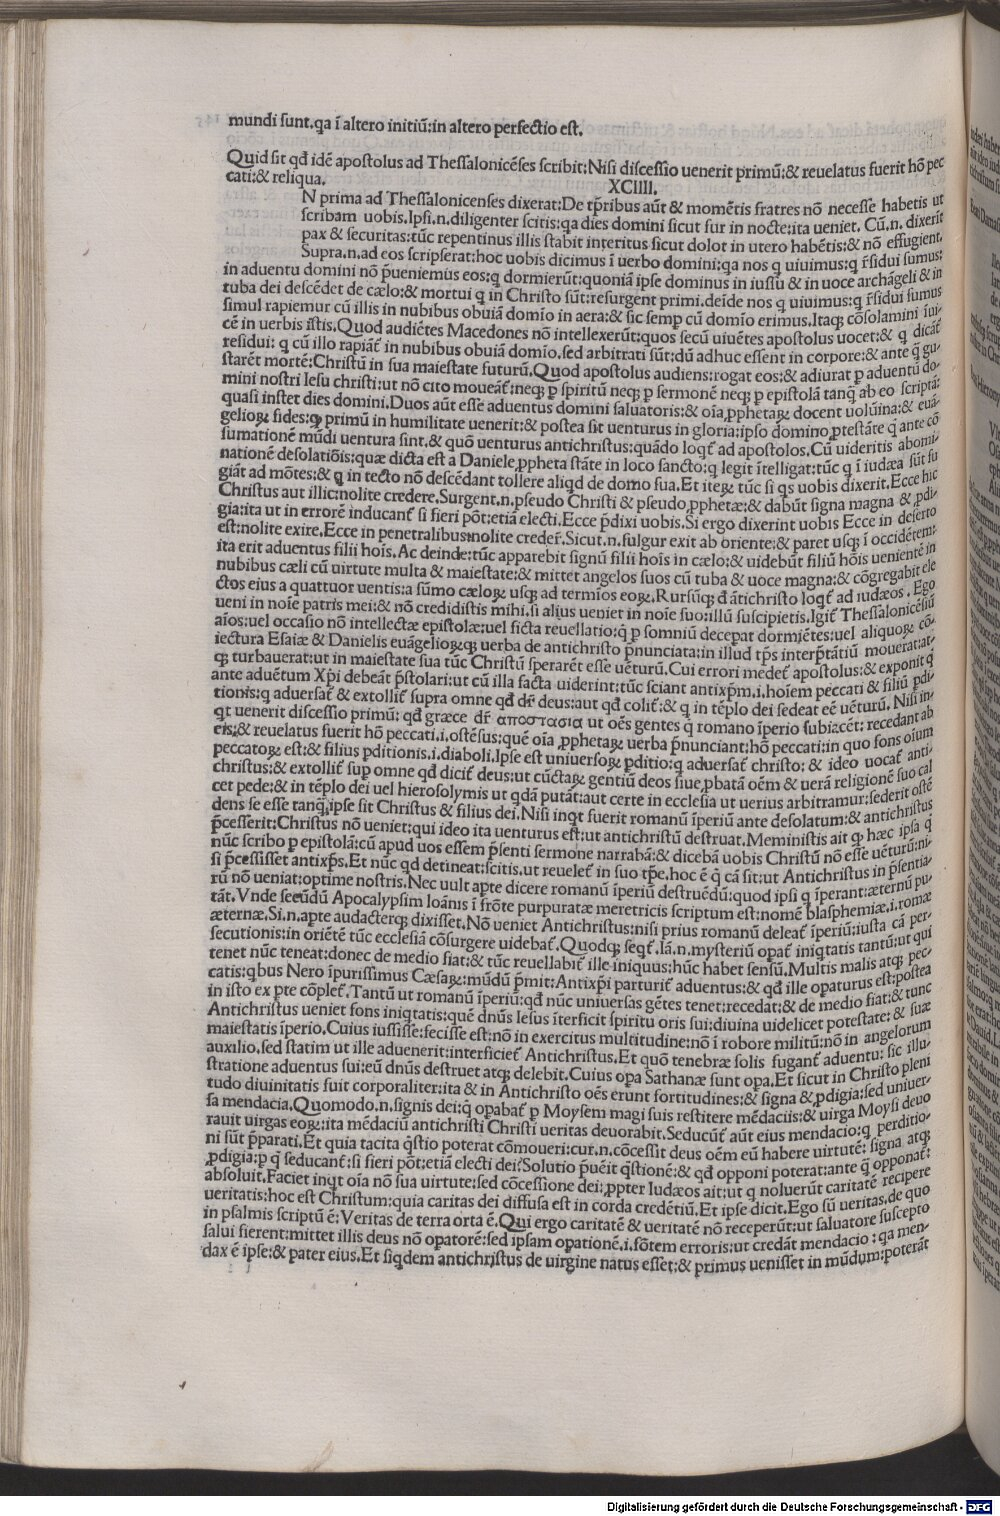 mundi ſunt.qa ĩ altero initiũ:in altero perfectio eſt.
Quid ſit qđ idẽ apoſtolus ad Theſſalonicẽſes ſcribit:Niſi diſceſſio uenerit primũ:& reuelatus fuerit hõ pec
cati:& reliqua. XCIIII.
N prima ad Theſſalonicenſes dixerat:De tp̃ribus aũt & momẽtis fratres nõ neceſſe habetis ut
ſcribam uobis.Ipſi.n.diligenter ſcitis:qa dies domini ſicut fur in nocte:ita ueniet. Cũ.n.dixerĩt
pax & ſecuritas:tũc repentinus illis ſtabit interitus ſicut dolor in utero habẽtis:& nõ effugient.
Supra.n.ad eos ſcripſerat:hoc uobis dicimus ĩ uerbo domini:qa nos q uiuimus:q r̃ſidui ſumus:
in aduentu domini nõ p̃ueniemus eos:q dormierũt:quoniã ipſe dominus in iuſſu & in uoce archãgeli & in
tuba dei deſcẽdet de cælo:& mortui q in Chriſto ſũt:reſurgent primi.deĩde nos q uiuimus:q r̃ſidui ſumus
ſimul rapiemur cũ illis in nubibus obuiã domĩo in aera:& ſic ſemp cũ domĩo erimus.Itaqꝫ cõſolamini ĩui-
cẽ in uerbis iſtis.Quod audiẽtes Macedones nõ intellexerũt:quos ſecũ uiuẽtes apoſtolus uocet:& q dicãt̃
reſidui: q cũ illo rapiãt̃ in nubibus obuiã domĩo.ſed arbitrati ſũt:dũ adhuc eſſent in corpore:& ante q̃ gu-
ſtarẽt mortẽ:Chriſtũ in ſua maieſtate futurũ.Quod apoſtolus audiens:rogat eos:& adiurat ꝑ aduentũ do-
mini noſtri Ieſu chriſti:ut nõ cito moueãt̃:neqꝫ ꝑ ſpiritũ neqꝫ ꝑ ſermonẽ neqꝫ ꝑ epiſtolã tanq̃ ab eo ſcriptã:
quaſi inſtet dies domini.Duos aũt eſſe aduentus domini ſaluatoris:& oĩa ꝓphetaꝝ docent uolũina:& euã-
gelioꝝ fides:qꝫ primũ in humilitate uenerit:& poſtea ſit uenturus in gloria:ipſo domino ꝓteſtãte q̃ ante cõ
ſumationẽ mũdi uentura ſint.& quõ uenturus antichriſtus:quãdo loqt̃ ad apoſtolos.Cũ uideritis abomi-
nationẽ deſolatiõis:quæ dicta eſt a Daniele ꝓpheta ſtãte in loco ſancto:q legit ĩtelligat:tũc q ĩ iudæa ſũt fu
giãt ad mõtes:& q in tecto nõ deſcẽdant tollere aliqd de domo ſua.Et iteꝝ tũc ſi qs uobis dixerit.Ecce hic
Chriſtus aut illic:nolite credere.Surgent.n.pſeudo Chriſti & pſeudo ꝓphetæ:& dabũt ſigna magna & ꝓdi-
gia:ita ut in errorẽ inducant̃ ſi fieri põt:etiã electi.Ecce p̃dixi uobis.Si ergo dixerint uobis Ecce in deſerto
eſt:nolite exire.Ecce in penetralibus:nolite creder̃.Sicut.n.fulgur exit ab oriente:& paret uſqꝫ ĩ occidẽtem:
ita erit aduentus filii hoĩs.Ac deinde:tũc apparebit ſignũ filii hoĩs in cælo:& uidebũt filiũ hoĩs uenientẽ in
nubibus cæli cũ uirtute multa & maieſtate:& mittet angelos ſuos cũ tuba & uoce magna:& cõgregabit ele
ctos eius a quattuor uentis:a ſũmo cæloꝝ uſqꝫ ad termĩos eoꝝ.Rurſũqꝫ đ ãtichriſto loqt̃ ad iudæos. Ego
ueni in noĩe patris mei:& nõ credidiſtis mihi.ſi alius ueniet in noĩe ſuo:illũ ſuſcipietis.Igit̃ Theſſalonicẽſiũ
aĩos:uel occaſio nõ intellectæ epiſtolæ:uel ficta reuellatio:q̃ ꝑ ſomniũ decepat dormiẽtes:uel aliquoꝝ cõ-
iectura Eſaiæ & Danielis euãgelioꝝqꝫ uerba de antichriſto p̃nunciata:in illud tp̃s interp̃tãtiũ mouerat:at-
qꝫ turbauerat:ut in maieſtate ſua tũc Chriſtũ ſperarẽt eſſe uẽturũ.Cui errori medet̃ apoſtolus:& exponit q̃
ante aduẽtum Xp̃i debeãt p̃ſtolari:ut cũ illa facta uiderint:tũc ſciant antixp̃m.i.hoĩem peccati & filiũ ꝑdi-
tionis:q aduerſat̃ & extollit̃ ſupra omne qđ dr̃ deus:aut qđ colit̃:& q in tẽplo dei ſedeat eẽ uẽturũ. Niſi in-
qt uenerit diſceſſio primũ: qđ græce dr̃ αποστασια ut oẽs gentes q romano ĩperio ſubiacẽt: recedant ab
eis:& reuelatus fuerit hõ peccati.i.oſtẽſus:quẽ oĩa ꝓphetaꝝ uerba p̃nunciant:hõ peccati:in quo fons oĩum
peccatoꝝ eſt:& filius ꝑditionis.i.diaboli.Ipſe eſt uniuerſoꝝ ꝑditio:q aduerſat̃ chriſto: & ideo uocat̃ anti-
chriſtus:& extollit̃ ſup omne qđ dicit̃ deus:ut cũctaꝝ gentiũ deos ſiue ꝓbatã oẽm & uerã religionẽ ſuo cal
cet pede:& in tẽplo dei uel hieroſolymis ut qdã putãt:aut certe in eccleſia ut uerius arbitramur:ſederit oſtẽ
dens ſe eſſe tanq̃ ipſe ſit Chriſtus & filius dei.Niſi inqt fuerit romanũ ĩperiũ ante deſolatum:& antichriſtus
p̃ceſſerit:Chriſtus nõ ueniet:qui ideo ita uenturus eſt:ut antichriſtũ deſtruat.Meminiſtis ait qꝫ hæc ipſa q̃
nũc ſcribo ꝑ epiſtolã:cũ apud uos eſſem p̃ſenti ſermone narrabã:& dicebã uobis Chriſtũ nõ eſſe uẽturũ:ni-
ſi p̃ceſſiſſet antixp̃s.Et nũc qd detineat:ſcitis.ut reuelet̃ in ſuo tp̃e.hoc ẽ q̃ cã ſit:ut Antichriſtus in p̃ſentia-
rũ nõ ueniat:optime noſtris.Nec uult apte dicere romanũ ĩperiũ deſtruẽdũ:quod ipſi q ĩperant:æternũ pu-
tãt.Vnde ſecũdũ Apocalypſim Ioãnis ĩ frõte purpuratæ meretricis ſcriptum eſt:nomẽ blaſphemiæ.i.romæ
æternæ.Si.n.apte audacterqꝫ dixiſſet.Nõ ueniet Antichriſtus:niſi prius romanũ deleat̃ ĩperiũ:iuſta cã per-
ſecutionis:in oriẽtẽ tũc eccleſiã cõſurgere uidebat̃.Quodqꝫ ſeqt̃.Iã.n.myſteriũ opat̃ iniqtatis tantũ:ut qui
tenet nũc teneat:donec de medio fiat:& tũc reuellabit̃ ille iniquus:hũc habet ſenſũ.Multis malis atqꝫ pec-
catis:qbus Nero ĩpuriſſimus Cæſaꝝ:mũdũ p̃mit:Antixp̃i parturit̃ aduentus:& qđ ille opaturus eſt:poſtea
in iſto ex ꝑte cõplet̃.Tantũ ut romanũ ĩperiũ:qđ nũc uniuerſas gẽtes tenet:recedat:& de medio fiat:& tunc
Antichriſtus ueniet fons iniqtatis:quẽ dñus Ieſus ĩterficit ſpiritu oris ſui:diuina uidelicet poteſtate: & ſuæ
maieſtatis ĩperio.Cuius iuſſiſſe:feciſſe eſt:nõ in exercitus multitudine:nõ ĩ robore militũ:nõ in angelorum
auxilio.ſed ſtatim ut ille aduenerit:interficiet̃ Antichriſtus.Et quõ tenebræ ſolis fugant̃ aduentu: ſic illu-
ſtratione aduentus ſui:eũ dñus deſtruet atqꝫ delebit.Cuius opa Sathanæ ſunt opa.Et ſicut in Chriſto pleni
tudo diuinitatis fuit corporaliter:ita & in Antichriſto oẽs erunt fortitudines:& ſigna & ꝓdigia:ſed uniuer-
ſa mendacia.Quomodo.n.ſignis dei:q̃ opabat̃ ꝑ Moyſẽm magi ſuis reſtitere mẽdaciis:& uirga Moyſi deuo
rauit uirgas eoꝝ:ita mẽdaciũ antichriſti Chriſti ueritas deuorabit.Seducũt̃ aũt eius mendacio:q perditio-
ni ſũt p̃parati.Et quia tacita q̃ſtio poterat cõmoueri:cur.n.cõceſſit deus oẽm eũ habere uirtutẽ: ſigna atqꝫ
ꝓdigia:ꝑ q̃ ſeducant̃:ſi fieri põt:etiã electi dei?Solutio p̃uẽit q̃ſtionẽ:& qđ opponi poterat:ante q̃ opponat̃:
abſoluit.Faciet inqt oĩa nõ ſua uirtute:ſed cõceſſione dei:ꝓpter Iudæos ait:ut q noluerũt caritatẽ recipere
ueritatis:hoc eſt Chriſtum:quia caritas dei diffuſa eſt in corda credẽtiũ.Et ipſe dicit.Ego ſũ ueritas.de quo
in pſalmis ſcriptũ ẽ:Veritas de terra orta ẽ.Qui ergo caritatẽ & ueritatẽ nõ receperũt:ut ſaluatore ſuſcepto
ſalui fierent:mittet illis deus nõ opatorẽ:ſed ipſam opationẽ.i.fõtem erroris:ut credãt mendacio:qa men-
dax ẽ ipſe:& pater eius.Et ſiqdem antichriſtus de uirgine natus eſſet:& primus ueniſſet in mũdum:poterãt
Digitalisierung gefördert durch die Deutsche Forschungsgemeinschaft - DFG